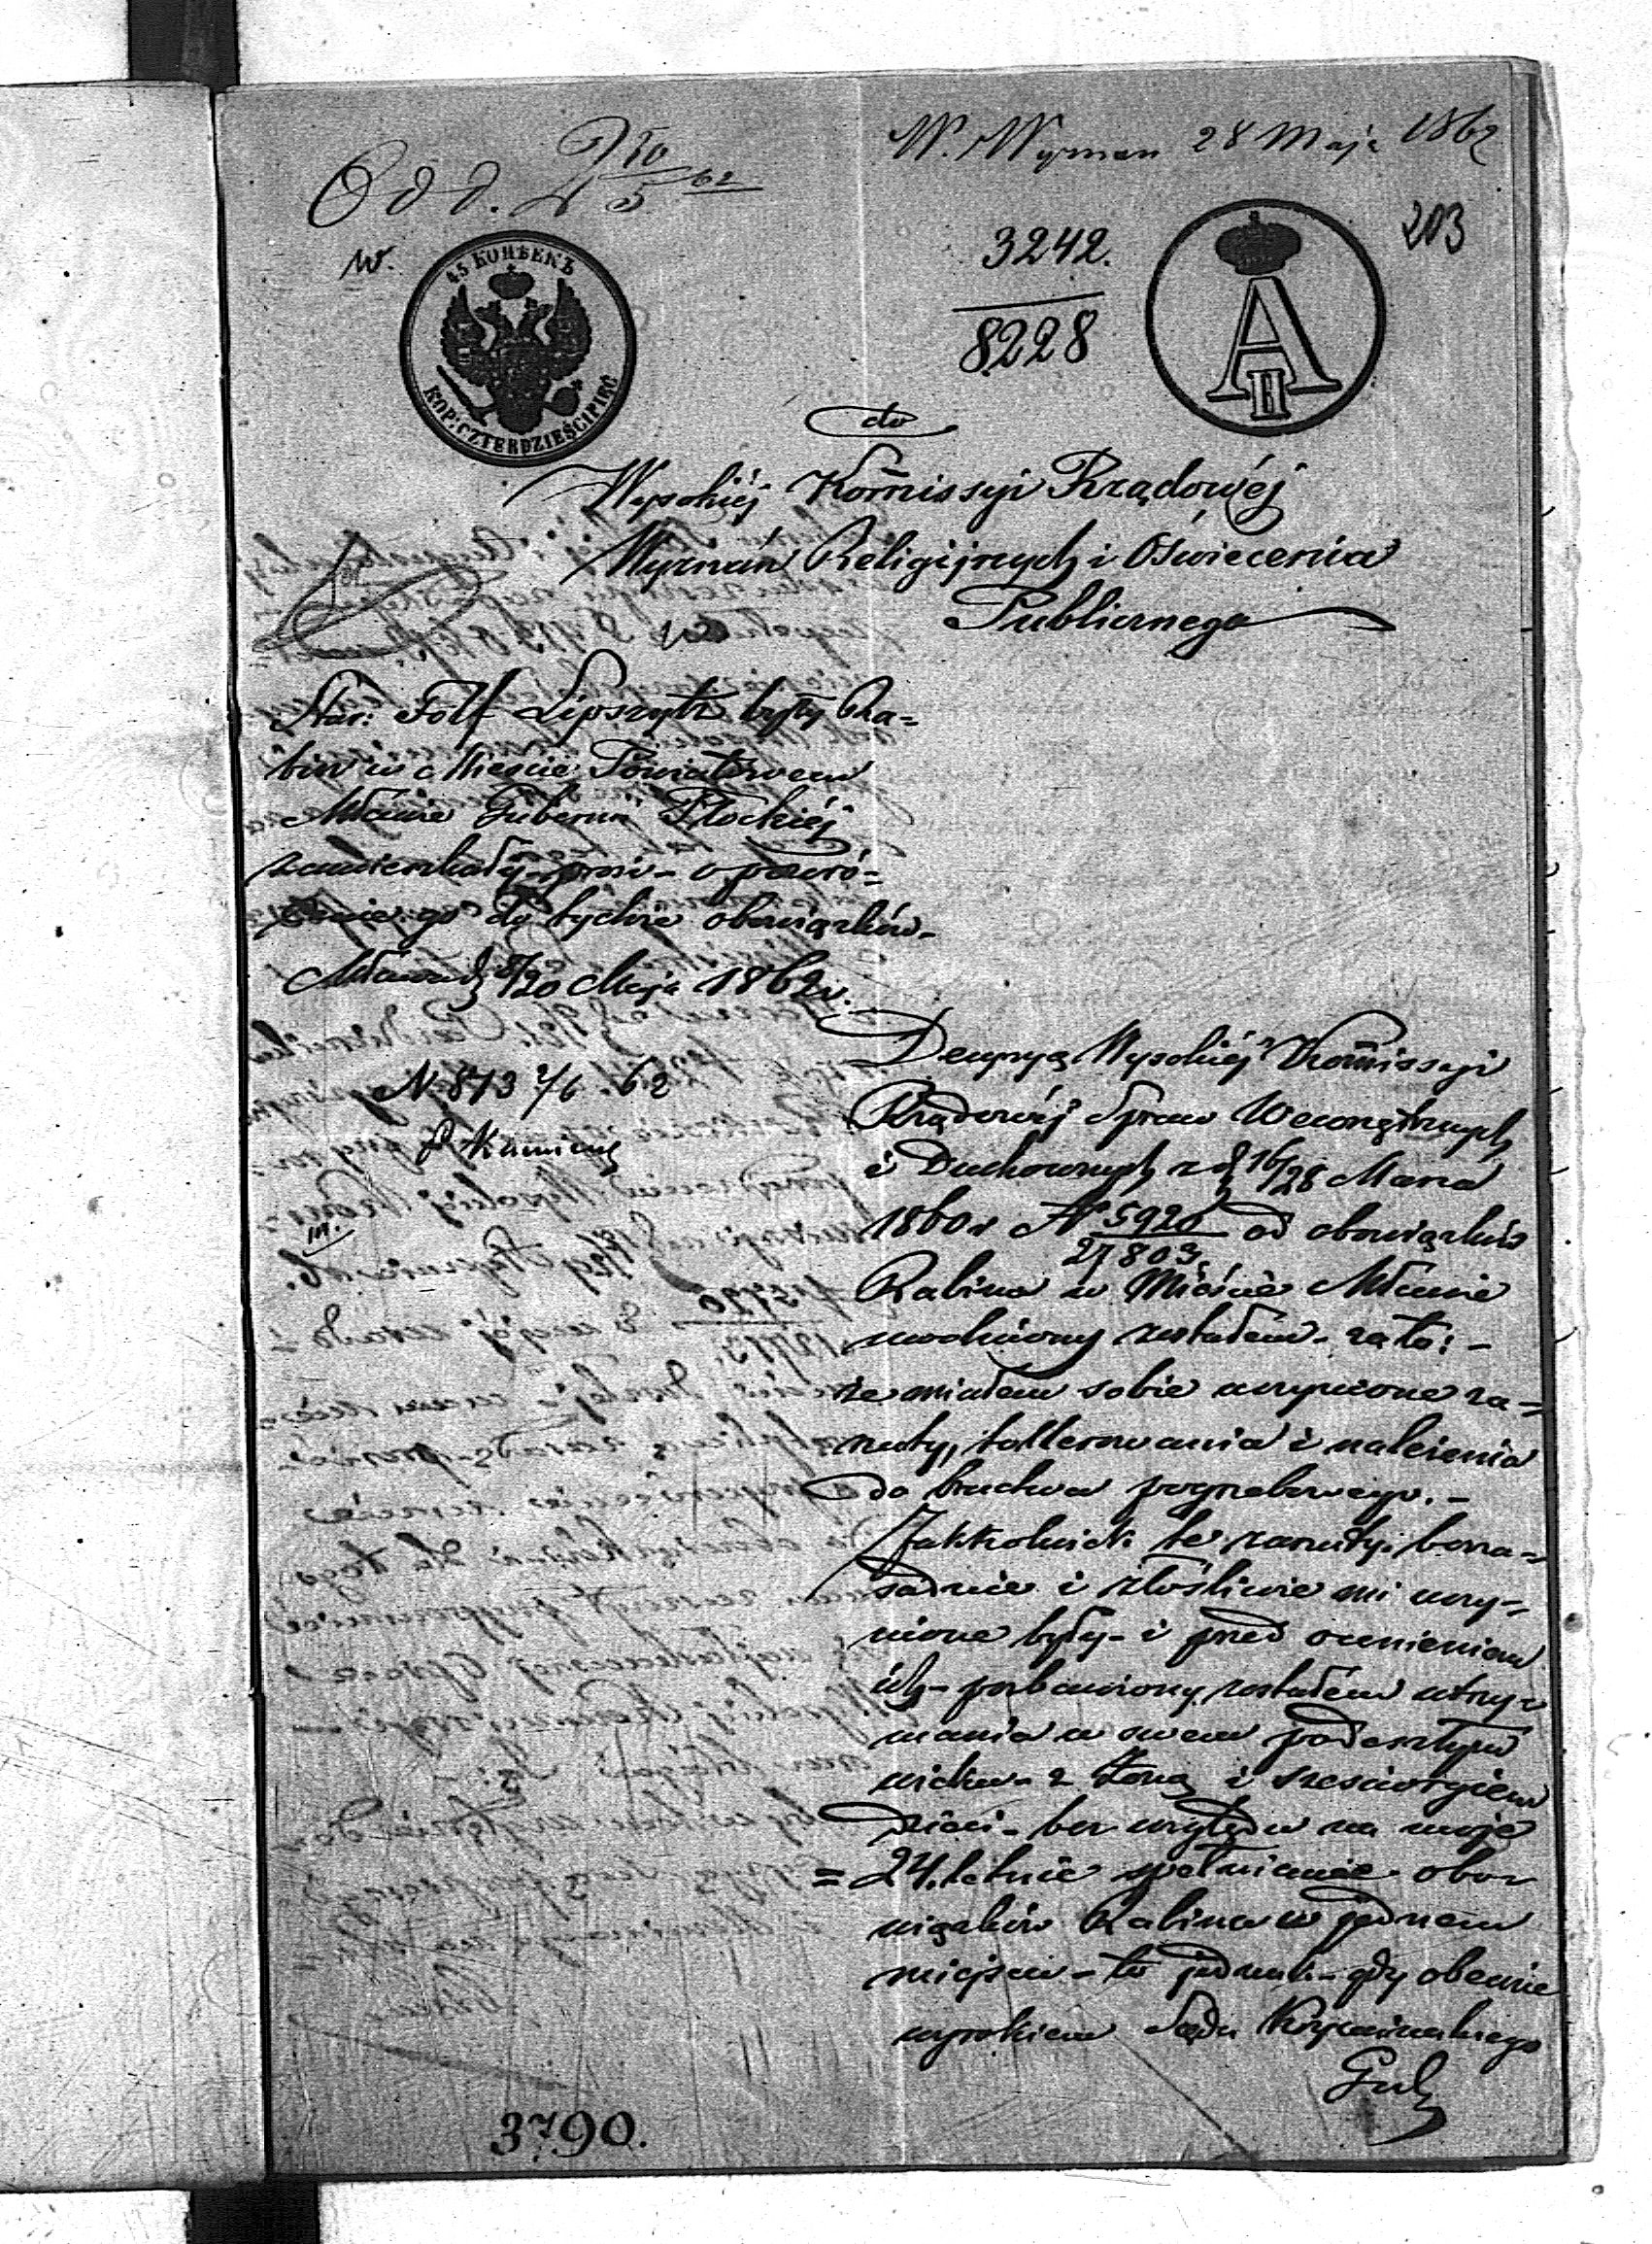 W. Wyznan 28 Maja 1862
Odd. 2 30/5 62
203
w.
3242.
8228
45 КОПѢЕКЪ
KOP: CZTERDZIEŚCI PIĘĆ
A II
do
Wysokiéj Kom̃issyi Rządowéj
Wyznań Religijnych i Oświecenia
Publicznego
Folf Lipszytz były Ra=
bin w Mieście Powiatowem
Mławie Gubernii Płockiéj
zamieszkały prosi o powró=
cenie go do tychże obowiązków
Mława d 8/20 Maja 1862 r.
N 873 2/6 62
Decyzyą Wysokiéj Kom̃issyi
Rządowéj Spraw Wewnętrznych
i Duchownych z d 16/28 Marca
1860 r N 5920/27803 od obowiązków
Rabina w Mieście Mławie
uwolniony zostałem - za to: -
że miałem sobie uczynione za=
rzuty, tollerowania i należenia
do bractwa pogrzebowego. -
Jakkolwiek te zarzuty bezza=
sadnie i złośliwie mi uczy=
nione były - i przed ocenieniem
ich - pozbawiony zostałem utrzy=
mania w swem podeszłym
wieku - z Żoną i sześciorgiem
Dzieci - bez względu na moje
= 24. letnie spełnianie obo=
wiązków Rabina w jednem
miejscu - to jednak - gdy obecnie
wyrokiem Sądu Kryminalnego
3790.